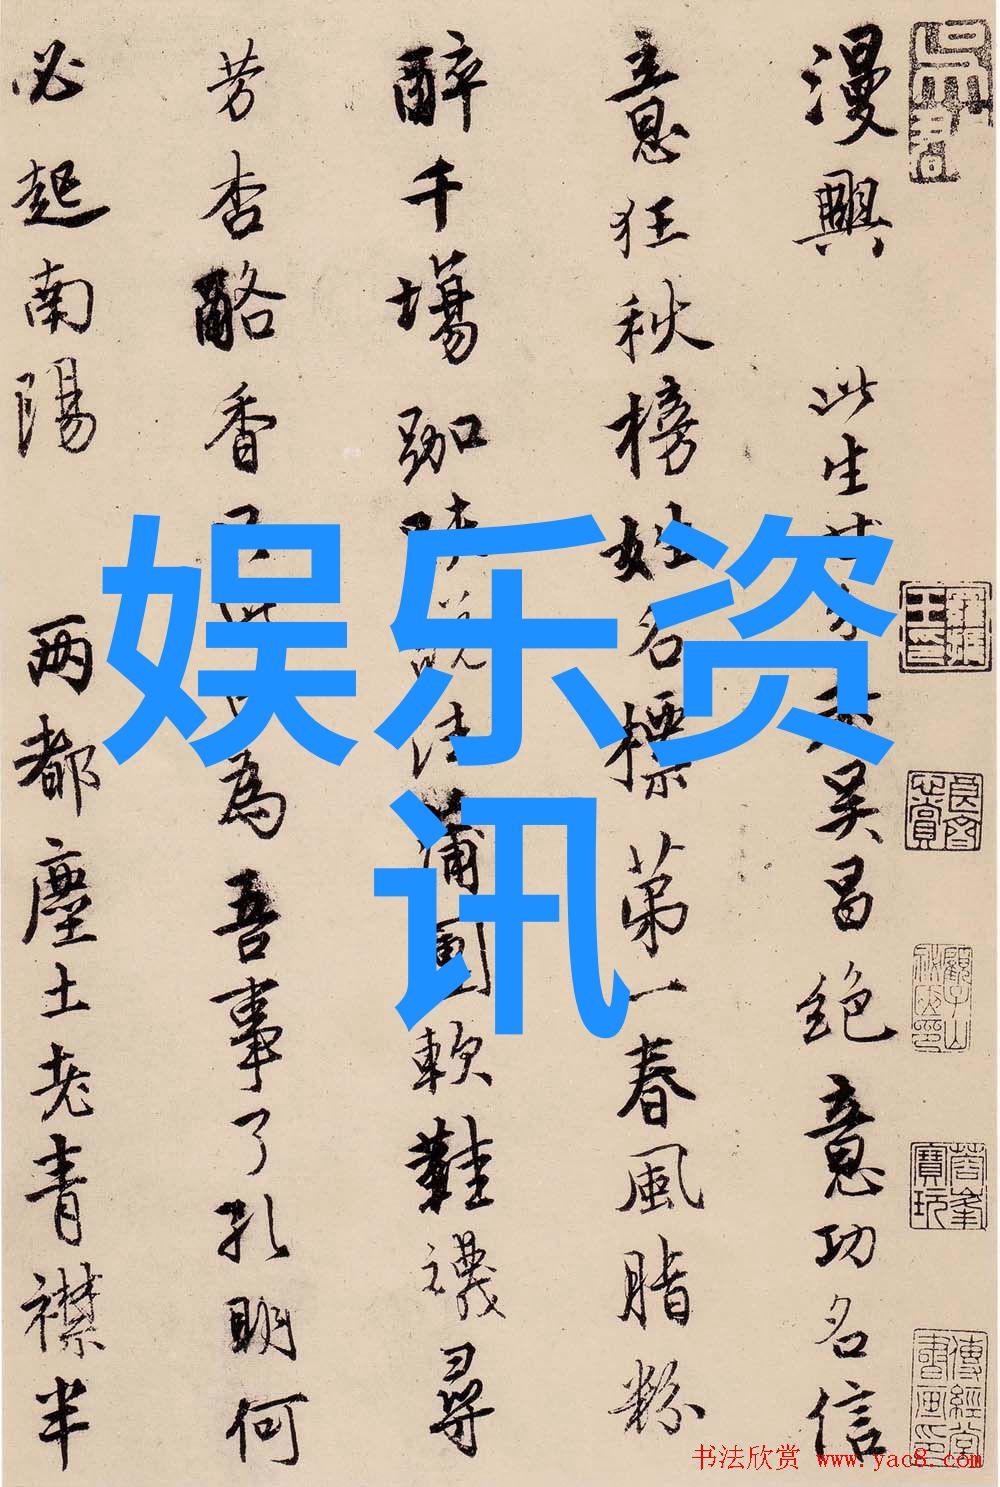 漫興　此生吳昌絕意功名信
意狂秋榜姓名標第一春風脂粉
醉千場跏法蒲團軟鞵襪尋
芳杏酪香為吾事了孔明何
必起南陽　两都塵土老青襟半
娱乐资
讯
书法欣赏 www.yac8.com